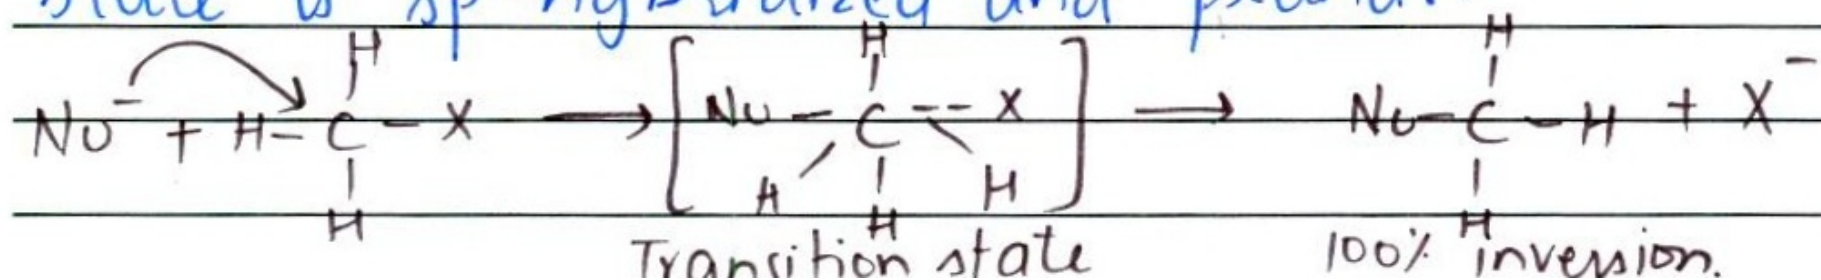 state is sp hybridized and
H H H
Nu⁻ + H-C-X ⟶ [Nu-C--X] ⟶ Nu-C-H + X⁻
H H
H H H
Transition state 100% inversion.